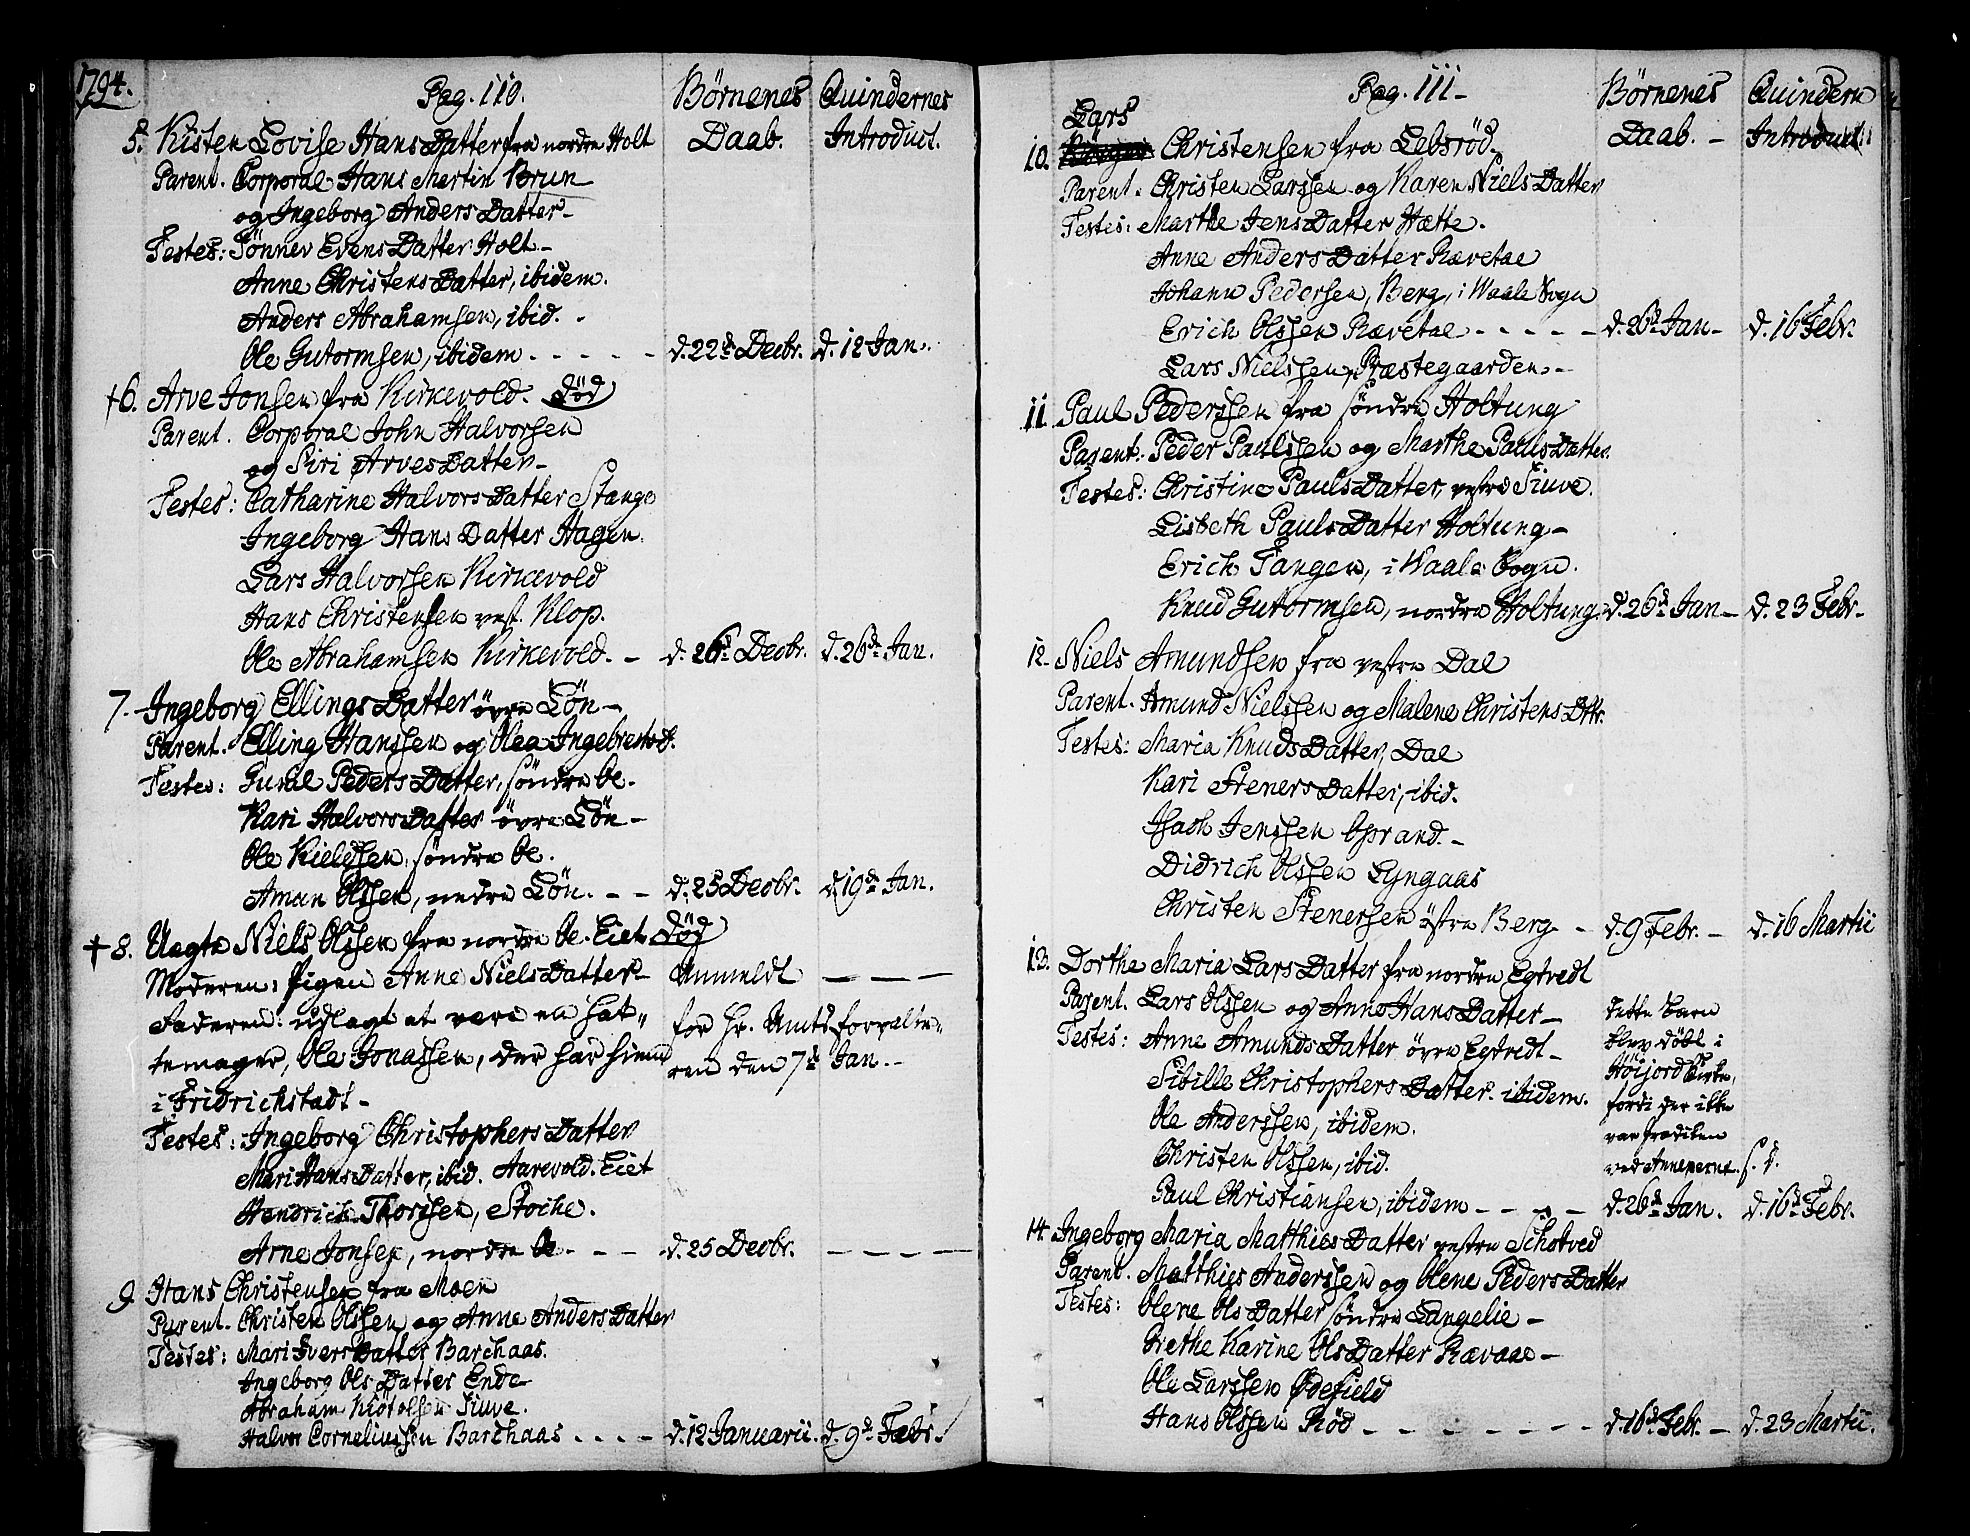 1794.
Pag. 110.
Börnenes Daab.
Quindernes Introduct.
5. Kisten Lovise HansDatter fra nordre Holt
Parent. Corporal Hans Martin Brun
og Ingeborg AndersDatter
Testes: Tönnev EvensDatter Holt
Anne ChristensDatter, ibidem.
Anders Abrahamsen, ibid.
Ole Gutormsen, ibidem - - - - d. 22de Decbr. d. 12 Jan.
†6. Arve Jonsen fra Kirkevold. död
Parent. Corporal John Halvorsen
og Siri ArvesDatter
Testes: Catharine HalvorsDatter Stange
Ingeborg HansDatter Hagen.
Lars Halvorsen Kirkevold
Hans Christensen vest. Klop.
Ole Abrahamsen Kirkevold. - d. 26de Decbr. d. 26de Jan.
7. Ingeborg EllingsDatter övre Lön
Parent. Elling Hanssen og Olea Ingebretsd.
Testes: Gunil PedersDatter, söndre Oe.
Kari HalvorsDatter övre Lön
Ole Kieldsen, söndre Oe.
Amun Olssen, nedre Lön. - - d. 25 Decbr. d. 19de Jan.
†8. Uægte Niels Olssen fra nordre Oe. Eiet död
Moderen: Pigen Anne NielsDatter Anmeldt — — —
Faderen: udlagt at være en Hat- for Hr. Amts Forvalte-
temager, Ole Jonassen, der har hiem ren den 7de Jan.
i Fridrichstadt
Testes: Ingeborg ChristophersDatter
Mari HansDatter, ibid. Aarevold. Eiet
Hendrich Thorssen, Stoche.
Arne Jonsen, nordre Oe. - - d. 25 Decbr. — — — —
9. Hans Christensen fra Moen
Parent. Christen Olssen og Anne AndersDatter
Testes: Mari IversDatter Barchaas.
Ingeborg OlsDatter Ende
Abraham Kiötolsen Siuve.
Halvor Corneliussen Barchaas - - - - d. 12 Januarii. d. 9de Febr.
Pag. 111
Börnenes Daab.
Quindern Introduct.
Lars
10. Christensen fra Lebsröd.
Parent: Christen Larssen og Karen NielsDatter
Testes: Marthe JensDatter Hætte.
Anne AndersDatter Rævetal
Johann Pedersen, Berg, i Waale Sogn
Erich Olssen Rævetal - - - - - d. 26de Jan d. 16 Febr.
Lars Nielssen, Præstegaarden.
11. Paul Pederssen fra söndre Holtung
Parent: Peder Paulssen og Marthe PaulsDatter.
Testes: Christine PaulsDatter, vestre Siuve.
Lisbeth PaulsDatter Holtung
Erich Tangen, i Waale Sogn.
Knud Gutormsen, nordre Holtung. d. 26de Jan d. 23 Febr.
12. Niels Amundsen fra vestre Dal
Parent. Amund Nielssen og Malene Christens Dttr.
Testes: Maria KnudsDatter, Dal
Kari StenersDatter, ibid.
Isach Jenssen Opsand.
Didrich Olssen Lyngaas
Christen Stenersen östre Berg - d. 9 Febr. d. 16 Martii
13. Dorthe Maria LarsDatter fra nordre Egtvedt
Parent. Lars Olssen og Anne HansDatter
Testes: Anne AmundsDatter övre Egtvedt
Sibille ChristophersDatter. ibidem.
Ole Anderssen, ibidem.
Christen Olssen, ibid.
Paul Christiansen, ibidem - - - - d. 26de Jan. d. 16de Febr.
Dette Barn
blev döbt i
Höijord Kirke,
fordi der ikke
var Prædiken
ved Annexerne. s. d.
14. Ingeborg Maria MatthiesDatter vestre Schotved
Parent. Matthies Anderssen og Olene PedersDatter
Testes: Olene OlsDatter söndre Langelie
Grethe Karine OlsDatter Rævaae
Ole Larssen Ödefield
Hans Olssen Röd - - - - - - d. 16de Febr. d. 23 Martii.